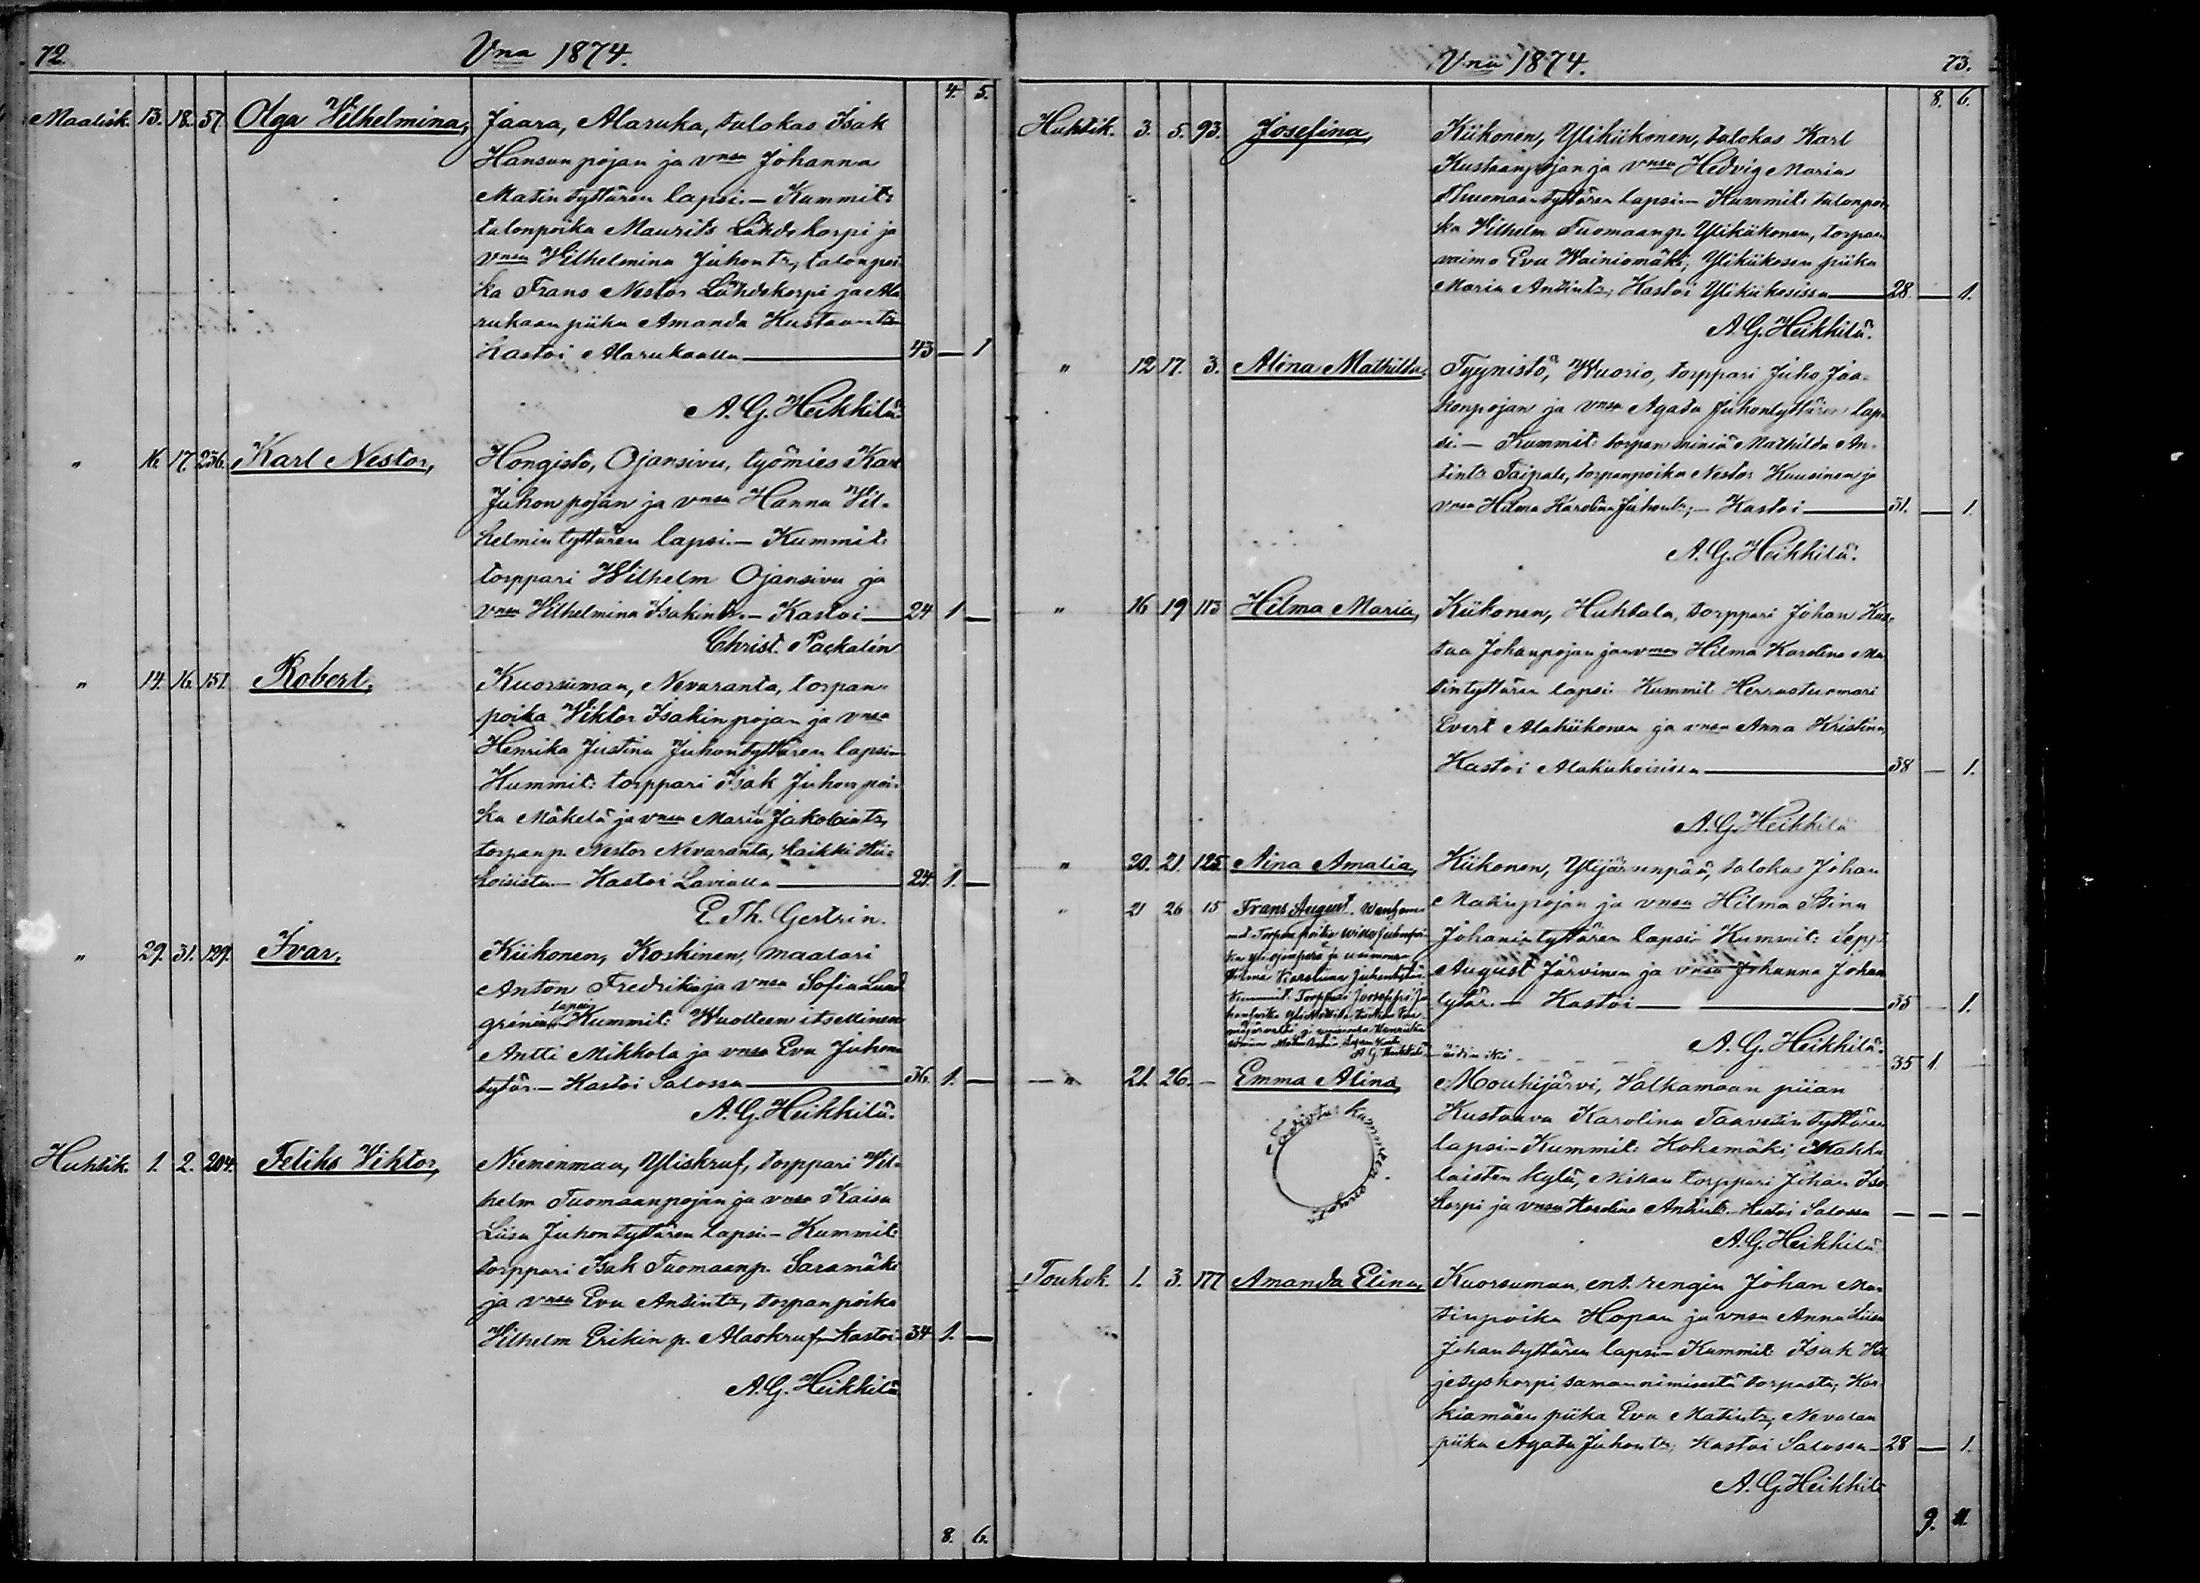 72. Vna 1874.
4. 5.
Maalisk. 13. 18. 57. Olga Wilhelmina, Jaara, Alaruka, talokas Isak
Hansun pojan ja vnsa Johanna
Matin tyttären lapsi. – Kummit:
talonpoika Maurits Lähdekorpi ja
vnsa Wilhelmina Juhontr, talonpoi-
ka Frans Nestor Lähdekorpi ja Ala-
rukaan piika Amanda Kustaantr
Kastoi Alarukaalla 43 — 1
A. G. Heikkilä.
" 16. 17. 236. Karl Nestor, Hongisto, Ojansivu, työmies Karl
Juhonpojan ja vnsa Hanna Vil-
helmin tyttären lapsi. – Kummit:
torppari Wilhelm Ojansivu ja
vnsa Wilhelmina Isakintr. – Kastoi 24 1 —
Christ. Packalén
" 14. 16. 151. Robert, Kuorsumaa, Nevaranta, torpan-
poika Viktor Isakin pojan ja vnsa
Henrika Justina Juhontyttären lapsi –
Kummit: torppari Isak Juhon poi-
ka Mäkelä ja vnsa Maria Jakobintr,
torpanp. Nestor Nevaranta, kaikki Kii-
koisista – Kastoi Lavialla 24. 1. —
E. Th. Gestrin.
" 29. 31. 129. Ivar, Kiikonen, Koskinen, maalari
Anton Fredrik ja vnsa Sofia Lund
grénin lapsi Kummit: Wuolteen itsellinen
Antti Mikkola ja vnsa Eva Juhon
tytär. – Kastoi Salossa 36. 1. —
A. G. Heikkilä.
Huhtik. 1. 2. 204. Feliks Viktor, Niemenmaa, Yliskruf, torppari Vil-
helm Tuomaanpojan ja vnsa Kaisa
Liisa Juhontyttären lapsi. – Kummit:
torppari Isak Tuomaanp. Saramäki
ja vnsa Eva Antintr, torpanpoika
Vilhelm Erikin p. Alaskruf – Kastoi 34 1. —
A. G. Heikkilä
8. 6.
Vna 1874. 73.
8. 6.
Huhtik. 3. 5. 93. Josefina, Kiikonen, Ylikiikonen, talokas Karl
Kustaanpojan ja vnsa Hedvig Maria
Thuomaan tyttären lapsi – Kummit: talonpoi-
ka Vilhelm Tuomaanp. Ylikiikonen, torpan
vaimo Eva Wainiomäki, Ylikiikosen piika
Maria Antintr, Kastoi Ylikiikosissa 28. — 1.
A. G. Heikkilä.
" 12 17. 3. Alina Mathilda, Tyynistö, Wuorio, torppari Juho Jaa-
konpojan ja vnsa Agata Juhontyttären lap-
si. – Kummit: torpan miniä Mathilda An-
tintr Taipale, torpanpoika Nestor Kuusinen ja
vnsa Hilma Karolina Juhontr; – Kastoi 31. — 1.
A. G. Heikkilä.
" 16 19 113 Hilma Maria, Kiikonen, Huhtala, torppari Johan Kus-
taa Johanpojan ja vnsa Hilma Karolina Ma-
tintyttären lapsi Kummit Herrastuomari
Evert Alakiikonen ja vnsa Anna Kristina
Kastoi Alakiikoisissa 38 — 1.
A. G. Heikkilä
" 20. 21. 125. Aina Amalia, Kiikonen, Ylijärvenpää, talokas Johan
Matinpojan ja vnsa Hilma Stina
Johanin tyttären lapsi Kummit: Sepp.
August Järvinen ja vnsa Johanna Johan
tytär. – Kastoi 35 1.
A. G. Heikkilä.
" 21 26 15 Frans August.
Torpan poika
ja vaimonsa
Hilma Karolina Juhontytär
Kummit: Torppari
A. G. Heikkilä äidin ikä 35 1.
— " 21. 26. – Emma Alina, Mouhijärvi, Salkamaan piian
Kustaava Karolina Taavetin tyttären
lapsi – Kummit: Kokemäki,
laisten kylä, torppari Johan Iso
korpi ja vnsa Karolina Antintr. Kastoi Salossa — — —
A. G. Heikkilä.
Toukok. 1. 3. 177 Amanda Elina, Kuorsumaa, ent. rengin Johan Ma-
tinpoika Hopan ja vnsa Anna Liisa
Johan tyttären lapsi – Kummit: Isak
jetyskorpi samannimisestä torpasta, Kor-
kiamäen piika Eva Matintr, Nevalan
piika Agata Juhontr, Kastoi Salossa 28 — 1.
A. G. Heikkilä
9. 11.